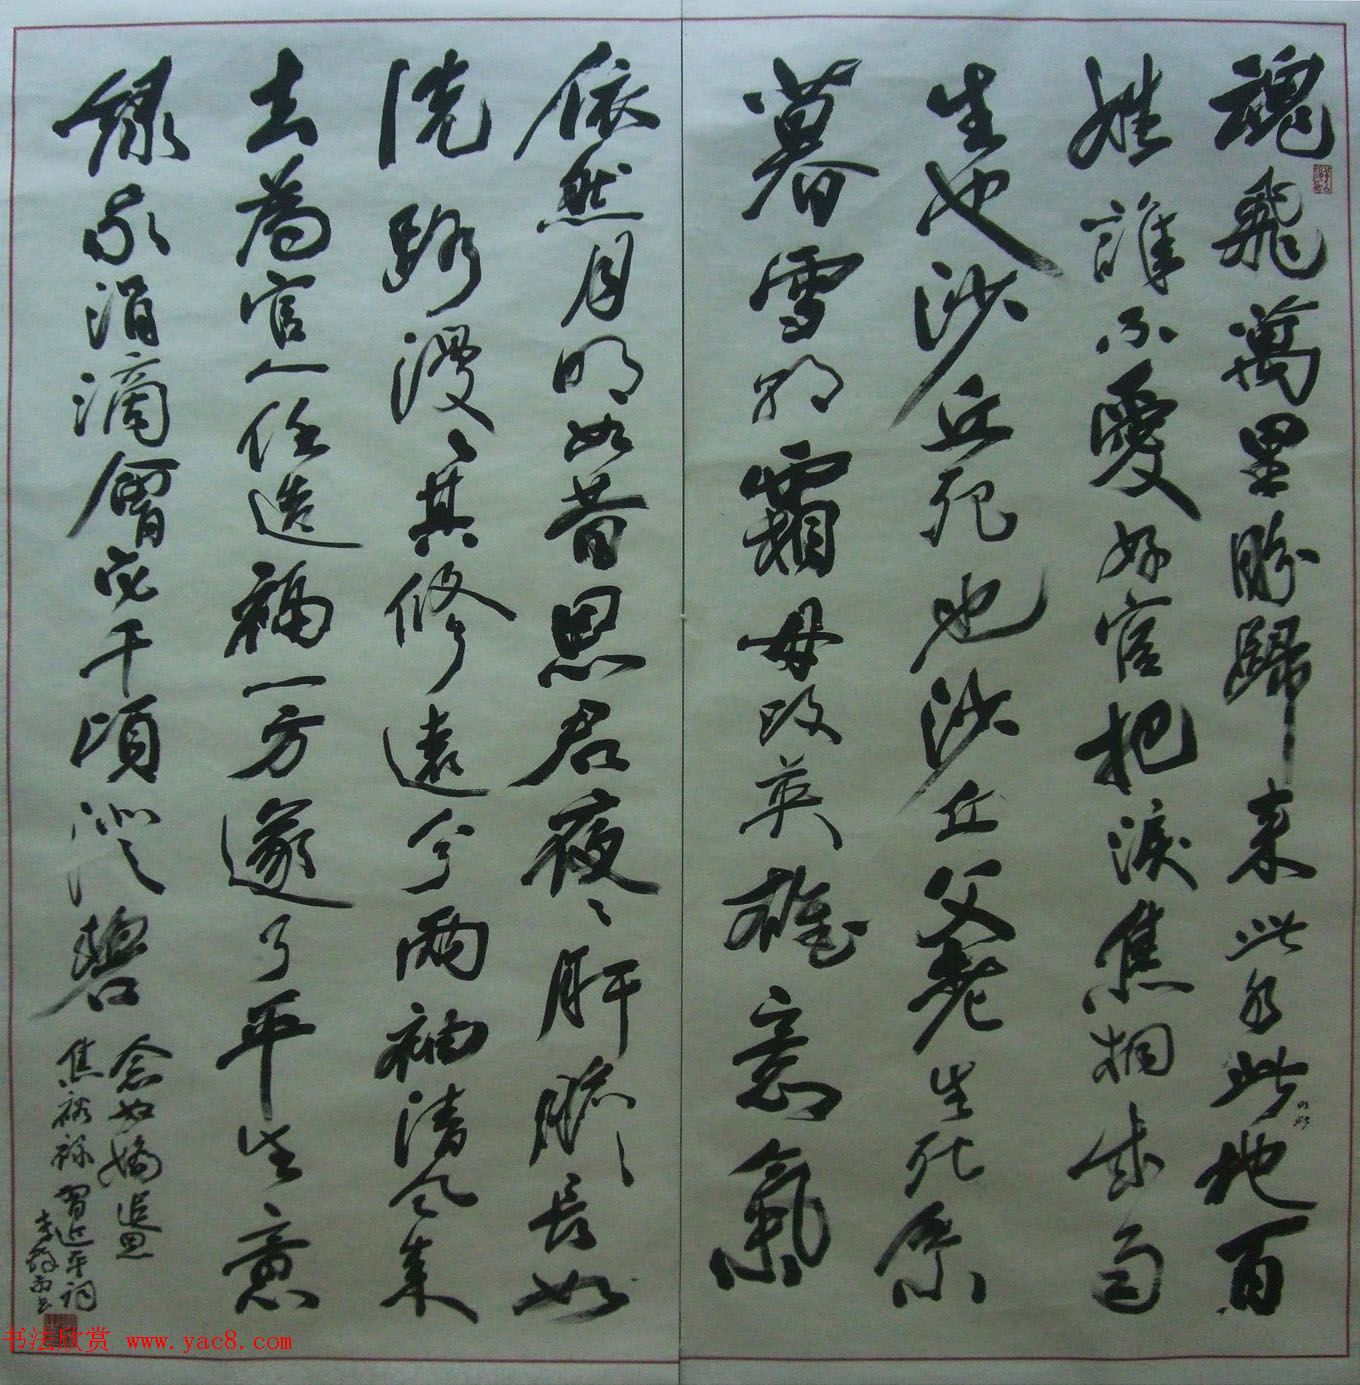 魂飛萬里盼歸来此水此山此地百
姓誰不愛好官把淚焦桐成雨
生也沙丘死也沙丘父老生死系
暮雪朝霜毋改英雄意氣
依然月明如昔思君夜々肝膽長如
洗路漫々其修遠兮兩袖清风来
去為官一任造福一方遂了平生意
绿我涓滴會它千頃澄碧
念奴嬌追思
焦裕禄習近平詞
书法欣赏 www.yac8.com